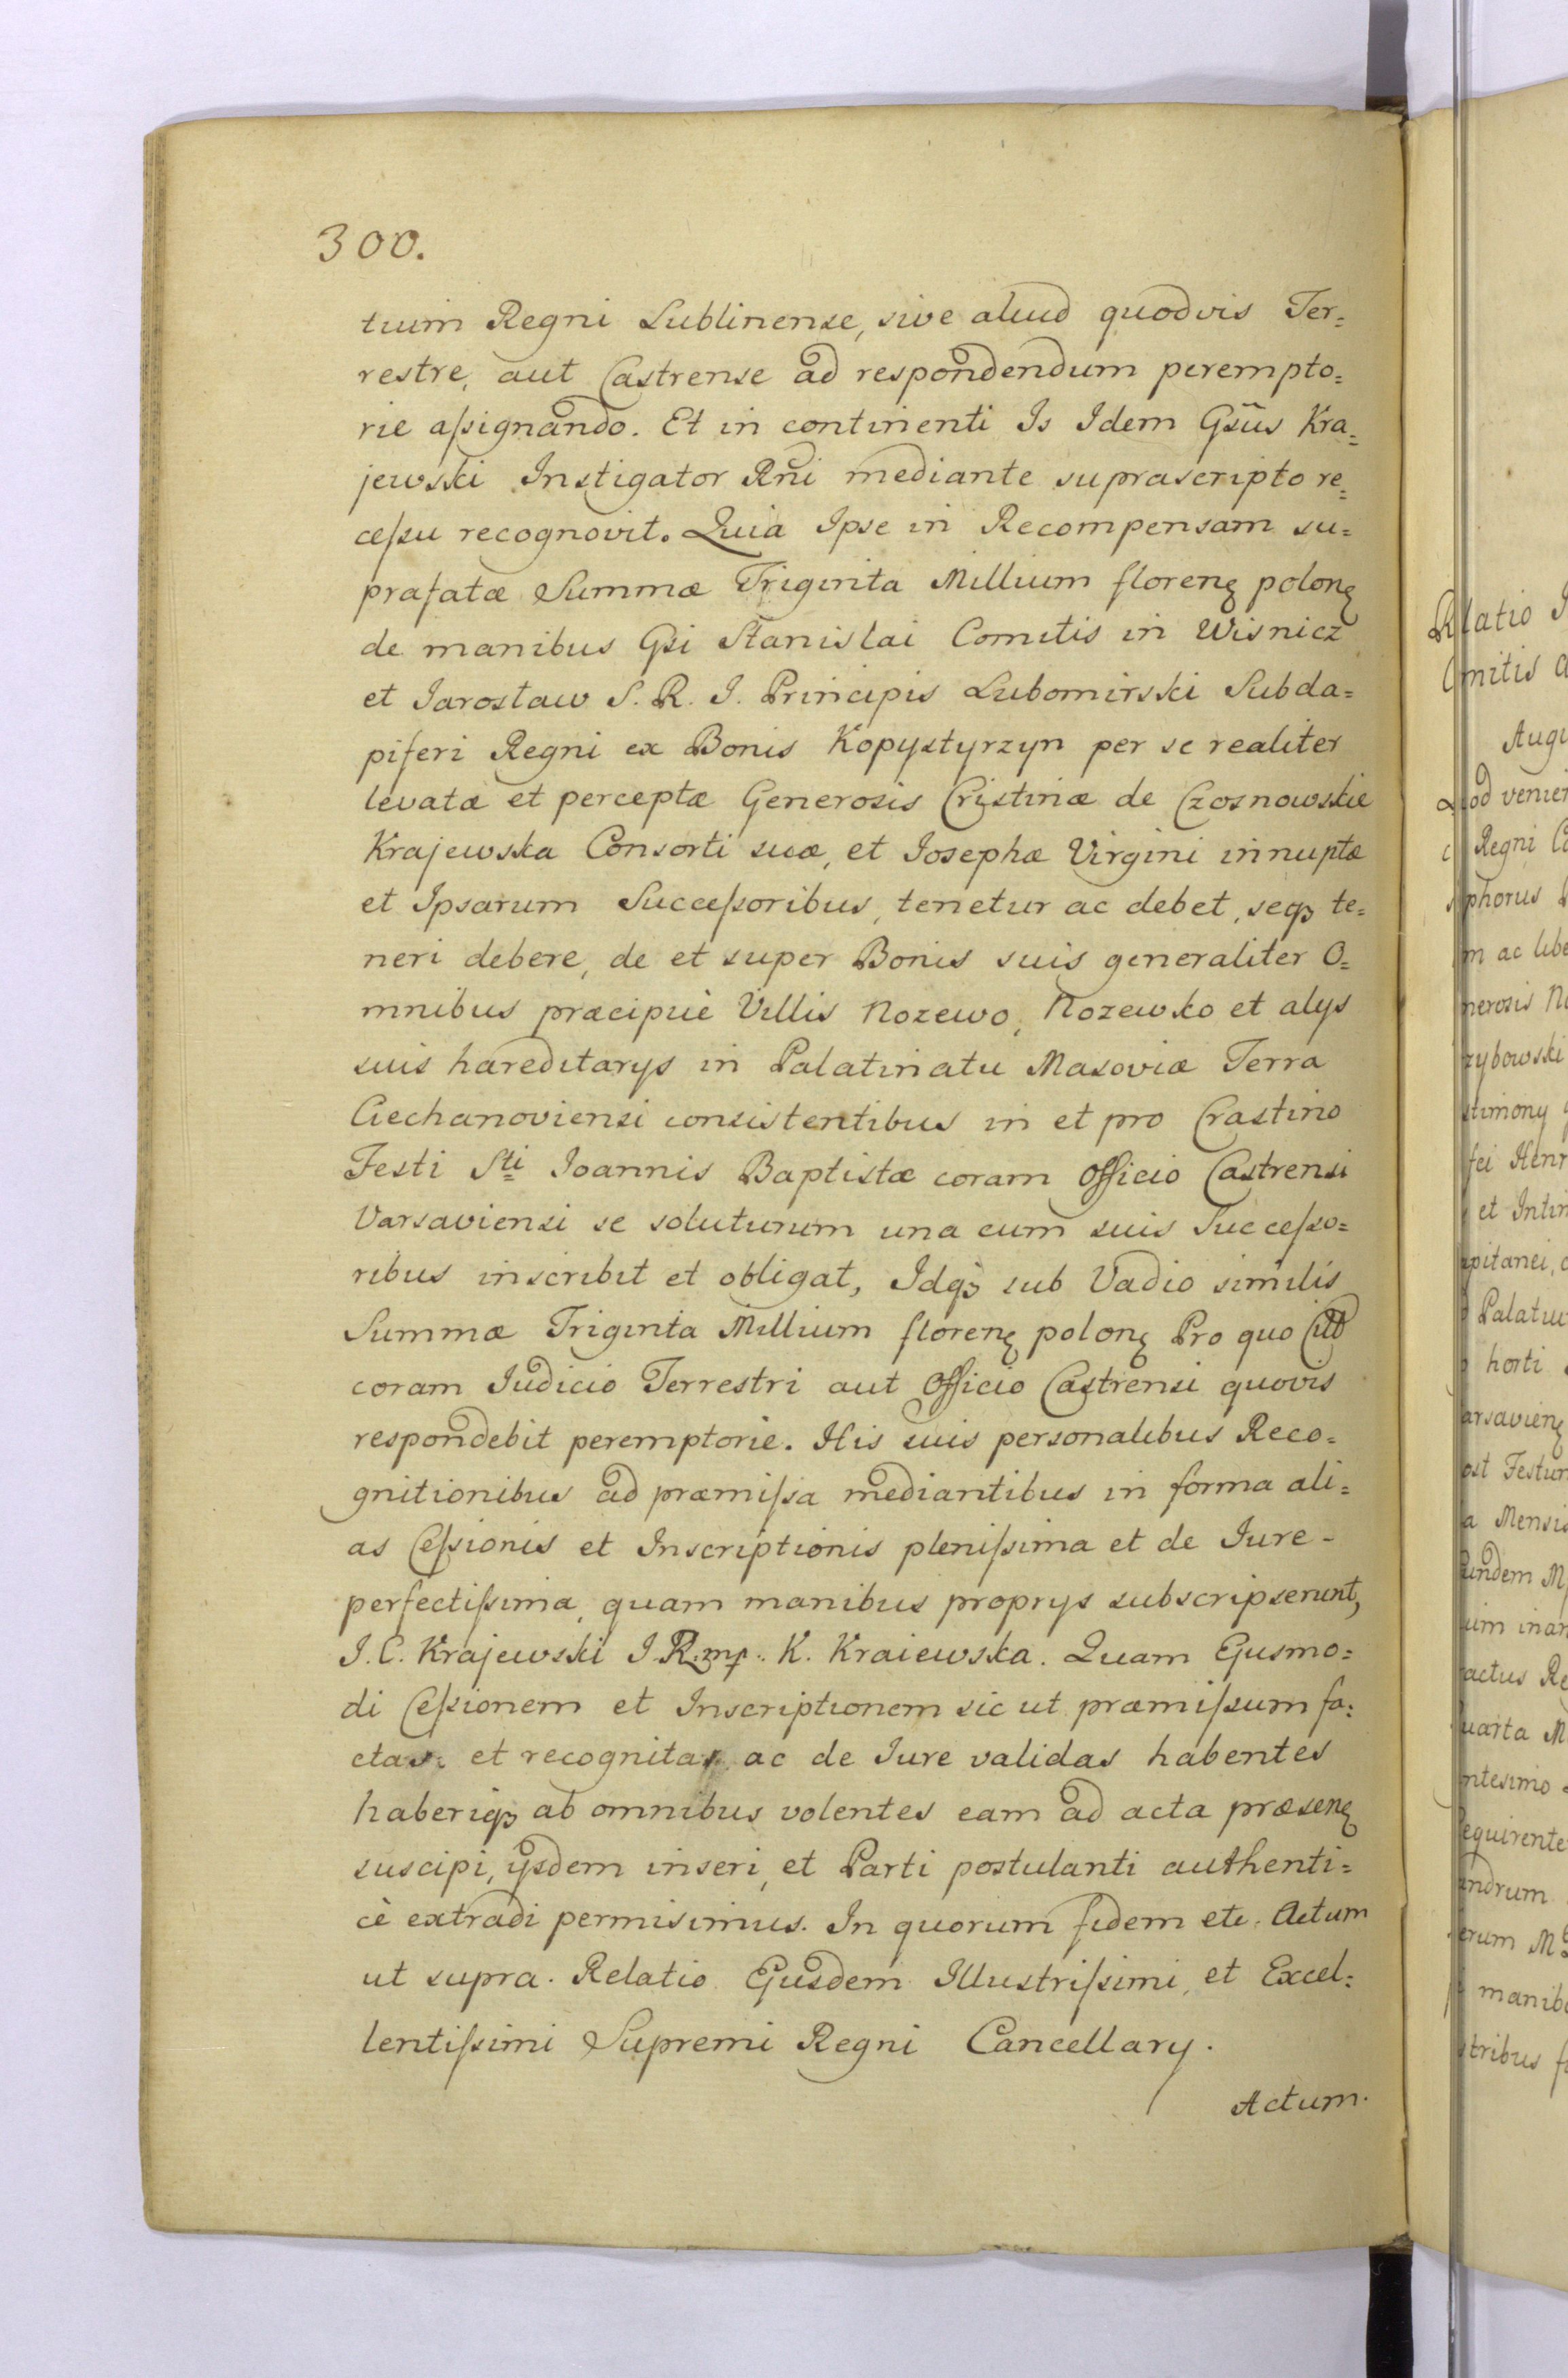 300.
tuum Regni Lublinense, sive aliud quodvis Ter=
restre, aut Castrense ad respondendum perempto=
rie aſsignando. Et in continenti Is Idem Gsūs Kra=
jewski Instigator Rñi mediante suprascripto re=
ceſsu recognovit. Quia Ipse in Recompensam su=
prafatæ Summæ Triginta Millium florenꝫ polonꝫ
de manibus Gsi Stanislai Comitis in Wisnicz
et Jarosław S. R. I. Principis Lubomirski Subda=
piferi Regni ex Bonis Kopystyrzyn per se realiter
levatæ et perceptæ Generosis Cristinæ de Czosnowskie
Krajewska Consorti suæ, et Josephæ Virgini innuptæ
et Ipsarum Succeſsoribus, tenetur ac debet, seqꝫ te=
neri debere, de et super Bonis suis generaliter O=
mnibus præcipuè Villis Nozewo, Nozewko et alys
suis hæreditarys in Palatinatu Masoviæ Terra
Ciechanoviensi consistentibus in et pro Crastino
Festi Sti Joannis Baptistæ coram Officio Castrensi
Varsaviensi se soluturum una cum suis Succeſso=
ribus inscribit et obligat, Idqꝫ sub Vadio similis
Summæ Triginta Millium florenꝫ polonꝫ Pro quo
coram Judicio Terrestri aut Officio Castrensi quovis
respondebit peremptorie. His suis personalibus Reco=
gnitionibus ad præmiſsa mediantibus in forma ali=
as Ceſsionis et Inscriptionis pleniſsima et de Jure-
perfectiſsima, quam manibus proprys subscripserunt,
J. C. Krajewski I. R. mp. K. Kraiewska. Quam Ejusmo=
di Ceſsionem et Inscriptionem sic ut præmiſsum fa=
ctas et recognitas ac de Jure validas habentes
haberiqꝫ ab omnibus volentes eam ad acta præsenꝫ
suscipi, ysdem inseri, et Parti postulanti authenti=
cè extradi permisimus. In quorum fidem etc. Actum
ut supra. Relatio Ejusdem Illustriſsimi, et Excel=
lentiſsimi Supremi Regni Cancellary.
Actum.